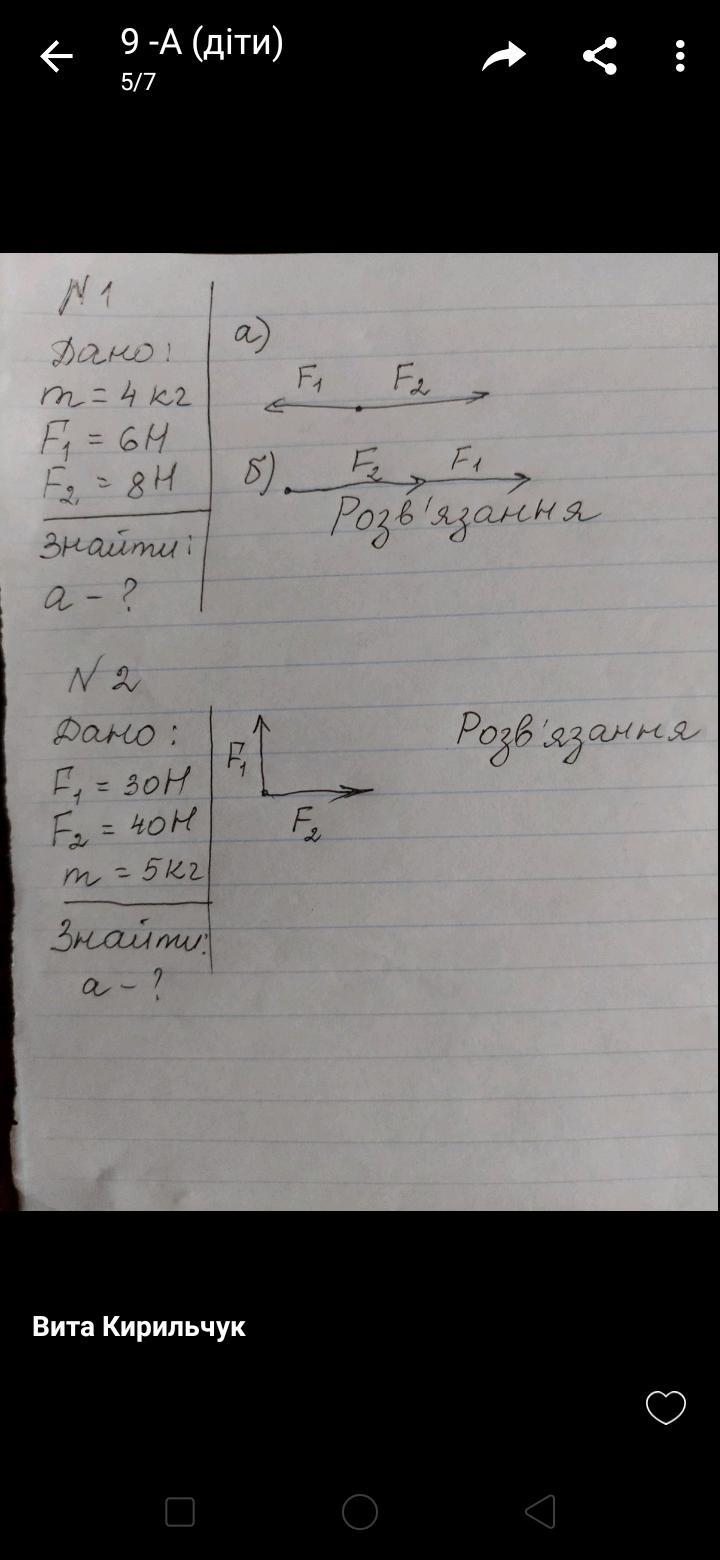 9 -А (діти)
5/7
N 1
Дано:
m = 4 кг
F₁ = 6 Н
F₂ = 8 Н
Знайти:
a - ?
а)
F₁ F₂
б)
F₂ F₁
Розв'язання
N 2
Дано:
F₁ = 30 Н
F₂ = 40 Н
m = 5 кг
Знайти:
a - ?
F₁
F₂
Розв'язання
Вита Кирильчук